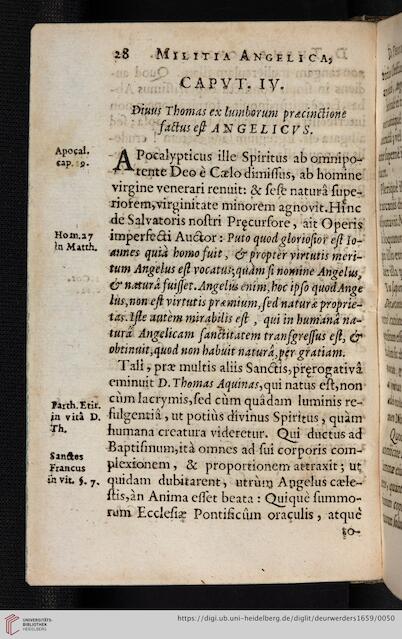 28 MILITIA ANGELICA,
CAPVT. IV.
Diuus Thomas ex lumborum præcinctione
factus est ANGELICVS.
Apocal.
cap. 19.
APocalypticus ille Spiritus ab omnipo-
tente Deo è Cælo dimissus, ab homine
virgine venerari renuit: & sese naturâ supe-
riorem, virginitate minorem agnovit. Hinc
de Salvatoris nostri Pręcursore, ait Operis
Hom. 27
in Matth.
imperfecti Auctor: Puto quod gloriosior est Io-
annes quià homo fuit, & propter virtutis meri-
tum Angelus est vocatus, quàm si nomine Angelus,
& naturâ fuisset. Angelus enim, hoc ipso quod Ange
lus, non est virtutis præmium, sed naturæ proprie-
tas. Iste autèm mirabilis est, qui in humanâ na-
turâ Angelicam sanctitatem transgressus est, &
obtinuit, quod non habuit naturâ, pèr gratiam.
Tali, præ multis aliis Sanctis, pręrogativâ
eminuit D. Thomas Aquinas, qui natus est, non
Barth. Etir.
in vitâ D.
Th.
cùm lacrymis, sed cùm quâdam luminis re-
fulgentiâ, ut potiùs divinus Spiritus, quàm
humana creatura videretur. Qui ductus ad
Baptismum, ità omnes ad sui corporis com-
Sanctes
Francus
in vit. §. 7.
plexionem, & proportionem attraxit; ut
quidam dubitarent, utrùm Angelus cæle-
stis, àn Anima esset beata: Quiquè summo-
rum Ecclesiæ Pontificûm oraculis, atquè
so-
https://digi.ub.uni-heidelberg.de/diglit/deurwerders1659/0050
UNIVERSITÄTS-
BIBLIOTHEK
HEIDELBERG